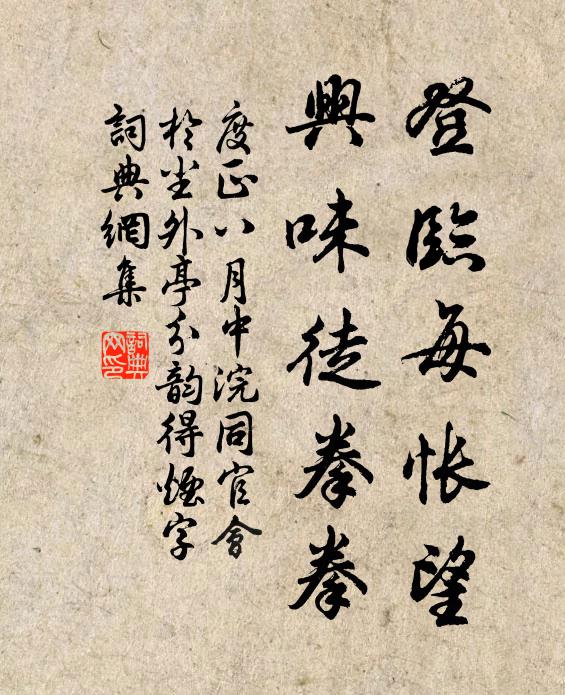 登臨每悵望
興味徒拳拳
度正八月中浣同官會
於尘外亭分韵得煙字
詞典網集
詞典网印